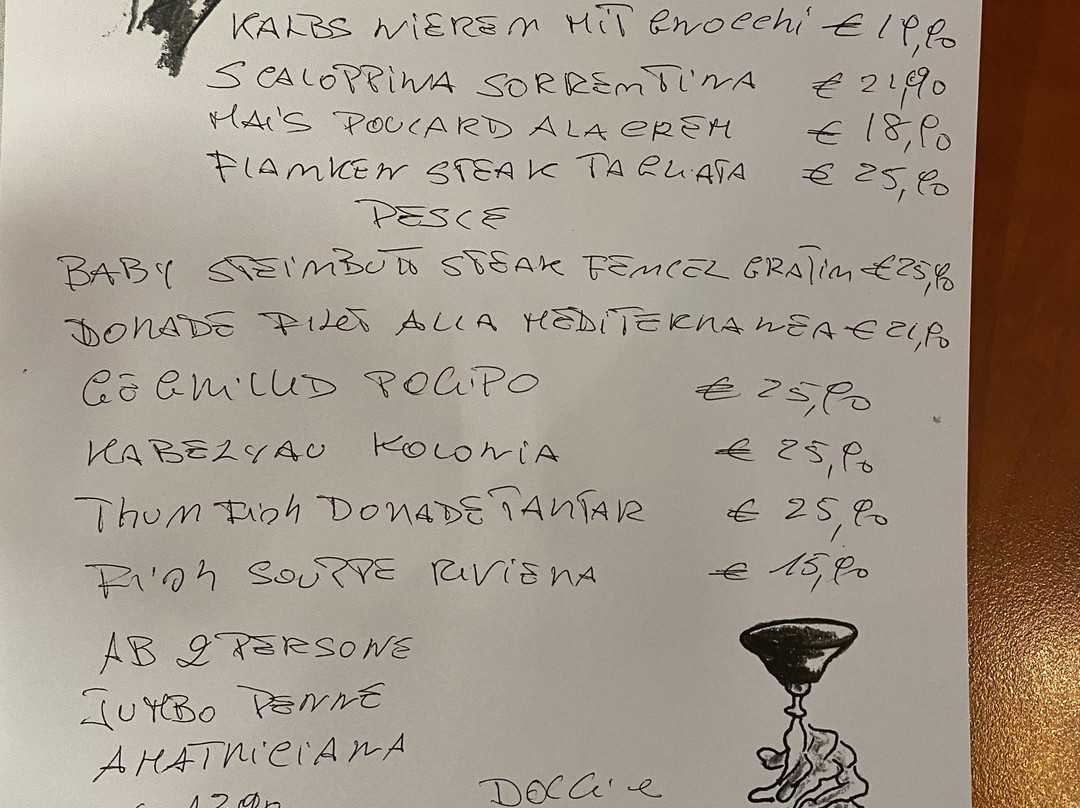 KALBS NIEREN MIT GNOCCHI € 19,90
SCALOPPINA SORRENTINA € 21,90
MAIS POULARD A LA CREM € 18,90
FLANKEN STEAK TAGLIATA € 25,90
PESCE
BABY STEINBUTT STEAK FENCEL GRATIN € 25,90
DORADE FILET ALLA MEDITERRANEA € 21,90
GEGRILLD POLIPO € 25,90
KABELYAU KOLONIA € 25,90
THUNFISH DORADE TARTAR € 25,90
FISH SOUPPE RIVIERA € 15,90
AB 2 PERSONE
JUMBO PENNE
AMATRICIANA
DOLCI e